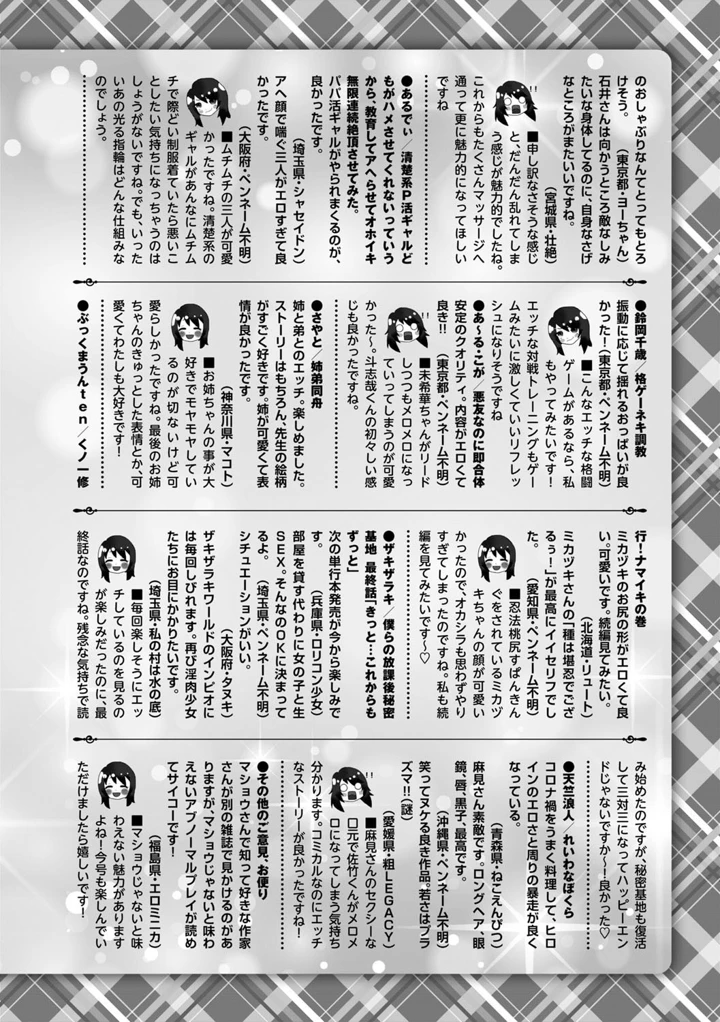 のおしゃぶりなんてとってもとろ
けそう。　（東京都・ヨーちゃん）
石井さんは向かうところ敵なしみ
たいな身体してるのに、自身なさげ
なところがまたいいですね。
（宮城県・壮絶）
■申し訳なさそうな感じ
と、だんだん乱れてしま
う感じが魅力的でしたね。
これからもたくさんマッサージへ
通って更に魅力的になってほしい
ですね
●あるでぃ／清楚系P活ギャルど
もがハメさせてくれないっていう
から、教育してアヘらせてオホイキ
無限連続絶頂させてみた。
パパ活ギャルがやられまくるのが、
良かったです。
（埼玉県・シャセイドン）
アヘ顔で喘ぐ三人がエロすぎて良
かったです。
（大阪府・ペンネーム不明）
■ムチムチの三人が可愛
かったですね。清楚系の
ギャルがあんなにムチム
チで際どい制服着ていたら悪いこ
としたい気持ちになっちゃうのは
しょうがないですね。でも、いった
いあの光る指輪はどんな仕組みな
のでしょう。
●鈴岡千歳／格ゲーネキ調教
振動に応じて揺れるおっぱいが良
かった！（東京都・ペンネーム不明）
■こんなエッチな格闘
ゲームがあるなら、私
もやってみたいです！
エッチな対戦トレーニングもゲー
ムみたいに激しくていいリフレッ
シュになりそうですね
●あ〜る・こが／悪友なのに即合体
安定のクオリティ。内容がエロくて
良き!!　（東京都・ペンネーム不明）
■未希華ちゃんがリード
しつつもメロメロになっ
ていってしまうのが可愛
かった〜。斗志哉くんの初々しい感
じも良かったですね。
●さやと／姉弟同舟
姉と弟とのエッチ。楽しめました。
ストーリーはもちろん、先生の絵柄
がすごく好きです。姉が可愛くて表
情が良かったです。
（神奈川県・マコト）
■お姉ちゃんの事が大
好きでモヤモヤしてい
るのが切ないけど可
愛らしかったですね。最後のお姉
ちゃんのきゅっとした表情とか、可
愛くてわたしも大好きです！
●ぶっくまうんten／くノ一修
行！ナマイキの巻
ミカヅキのお尻の形がエロくて良
い。可愛いです。続編見てみたい。
（北海道・リュート）
ミカヅキさんの「種は堪忍でござ
るぅ！」が最高にイイセリフでし
た。　（愛知県・ペンネーム不明）
■忍法桃尻すぱんきん
ぐをされているミカヅ
キちゃんの顔が可愛い
かったので、オカシラも思わずやり
すぎてしまったのですね。私も続
編を見てみたいです〜♡
●ザキザラキ／僕らの放課後秘密
基地 最終話「きっと…これからも
ずっと」
次の単行本発売が今から楽しみで
す。　（兵庫県・ロリコン少女）
部屋を貸す代わりに女の子と生
SEX。そんなのOKに決まって
るよ。　（埼玉県・ペンネーム不明）
シチュエーションがいい。
（大阪府・タヌキ）
ザキザラキワールドのインピオに
は毎回しびれます。再び淫肉少女
たちにお目にかかりたいです。
（埼玉県・私の村は水の底）
■毎回楽しそうにエッ
チしているのを見るの
が楽しみだったのに、最
終話なのですね。残念な気持ちで読
み始めたのですが、秘密基地も復活
して三対三になってハッピーエン
ドじゃないですか〜！良かった♡
●天竺浪人／れいわなぼくら
コロナ禍をうまく料理して、ヒロ
インのエロさと周りの暴走が良く
なっている。
（青森県・ねこえんぴつ）
麻見さん素敵です。ロングヘア、眼
鏡、唇、黒子、最高です。
（沖縄県・ペンネーム不明）
笑ってヌケる良き作品。若さはプラ
ズマ!!（謎）
（愛媛県・粗LEGACY）
■麻見さんのセクシーな
口元で佐竹くんがメロメ
ロになってしまう気持ち
分かります。コミカルなのにエッチ
なストーリーが良かったですね！
●その他のご意見、お便り
マショウさんで知って好きな作家
さんが別の雑誌で見かけるのがあ
りますが、マショウじゃないと味わ
えないアブノーマルプレイが読め
てサイコーです！
（福島県・エロミニカ）
■マショウじゃないと味
わえない魅力があります
よね！今号も楽しんでい
ただけましたら嬉しいです！